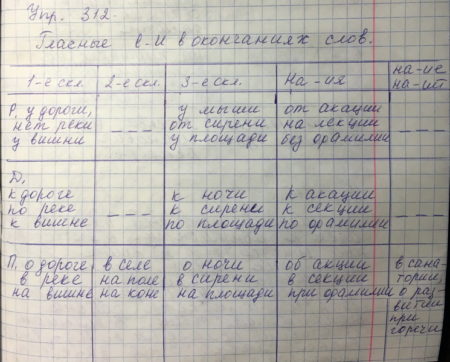 Упр. 312.
Гласные е-и в окончаниях слов.
1-е скл. 2-е скл. 3-е скл. На -ия на-ие на-ий
Р. у дороги, у мыши от акации
нет реки --- от сирени на лекции ---
у вишни у площади воз
Д.
к дороге к ночи к акации
по реке --- к сирени к секции ---
к вишне по площади по
П. о дороге в селе о ночи об акции в сана-
в реке на поле в сирени в секции тории,
на вишне на коне на площади при о раз-
витии
при